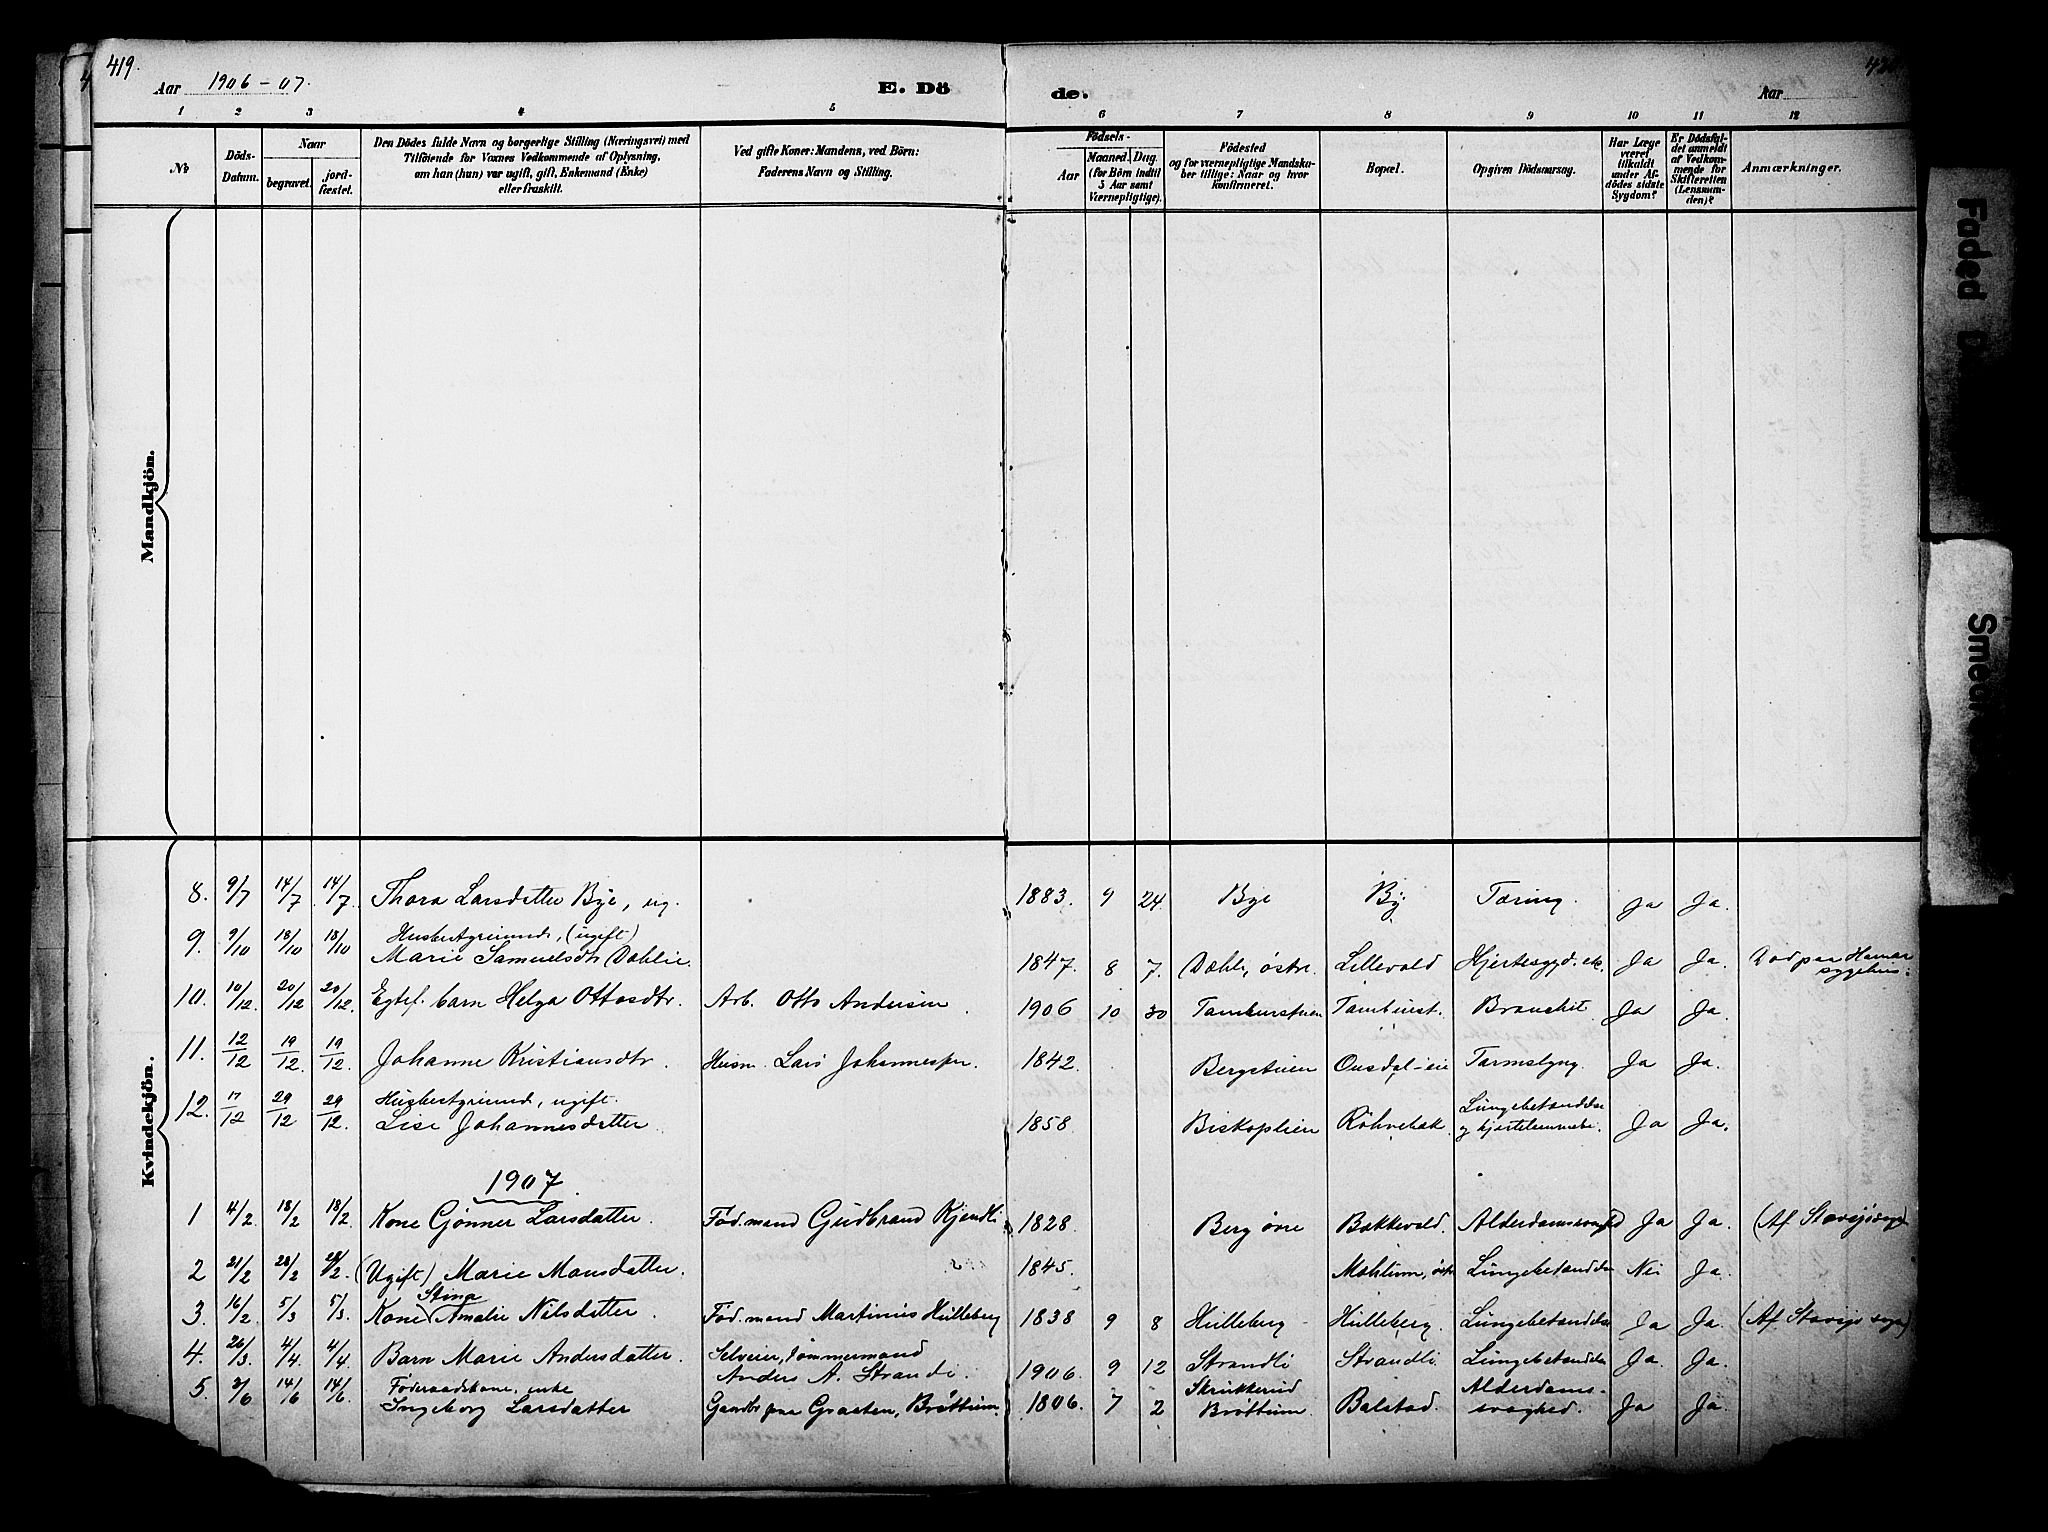 419.
Aar 1906-07.
E. Dö
de.
Aar
1 2 3 4 5 6 7 8 9 10 11 12
No
Döds-Datum.
Naar
begravet.
jord-fæstet.
Den Dödes fulde Navn og borgerlige Stilling (Næringsvei) med
Tilföiende for Voxnes Vedkommende af Oplysning,
om han (hun) var ugift, gift, Enkemand (Enke)
eller fraskilt.
Ved gifte Koner: Mandens, ved Börn:
Faderens Navn og Stilling.
Födsels-
Aar
Maaned. Dag.
(for Börn indtil
5 Aar samt
Værnepligtige).
Födested
og for værnepligtige Mandska-
ber tillige: Naar og hvor
konfirmeret.
Bopæl.
Opgiven Dödsaarsag.
Har Læge
været
tilkaldt
under Af-
dödes sidste
Sygdom?
Er Dödsfal-
det anmeldt
af Vedkom-
mende for
Skifteretten
(Lensman-
den)?
Anmærkninger.
Mandkjön.
Kvindekjön.
8. 9/7 14/7 14/7 Thora Larsdatter Bye, ug. 1883. 9 24. Bye By Tæring. Ja Ja.
9. 9/10 18/10 18/10 Husbestyrerinde, (ugift)
Marie Samuelsdtr Dæhlie. 1847. 8 7. Dæhli, østre. Lillevold Hjertesygd. Ja Ja. Død paa Hamar
sygehus.
10. 10/12. 20/12 20/12. Egtef. barn Helga Ottosdtr. Arb. Otto Andersen 1906 10 30 Tamburstuen Tamburst. Bronchit Ja Ja.
11. 12/12 19/12. 19/12. Johanne Kristiansdtr. Husm. Lars Johannessen. 1842. Bergstuen Ousdal-eie Tarmslyng. Ja Ja.
12. 17/12 29/12 29/12. Husbestyrerinde, ugift.
Lise Johannesdatter 1858 Biskoplien Röhnebæk. Lungebetændelse
og hjertelammelse. Ja Ja.
1907.
1 4/2. 18/2 18/2. Kone Gönner Larsdatter. Fød.mand Gudbrand Kjendli 1828. Berg övre Bakkevold. Alderdomssvaghed Ja Ja. (Af Stavsjösogn)
2 21/2 28/2 28/2. (Ugift) Marie Monsdatter. 1845. Mæhlum, östre Lungebetændelse Nei Ja.
Stina
3. 16/2. 5/3 5/3. Kone Amalie Nilsdatter Fød.mand Martinus Hulleberg 1838 9 8 Hulleberg Hulleberg. Lungebetændelse Ja Ja. (Af Stavsjö sogn)
4. 26/3. 4/4 4/4. Barn Marie Andersdatter. Selveier, tömmermand
Anders A. Strandli 1906. 9 12 Strandli Strandli. Lungebetændelse Ja. Ja.
5. 3/6 14/6 14/6. Föderaadskone, enke
Ingeborg Larsdatter Gaardbr. paa Graaten, Bröttum 1806. 7 2 Skrukkerud
Bröttum. Balstad. Alderdoms-
svaghed. Ja Ja.
Faded